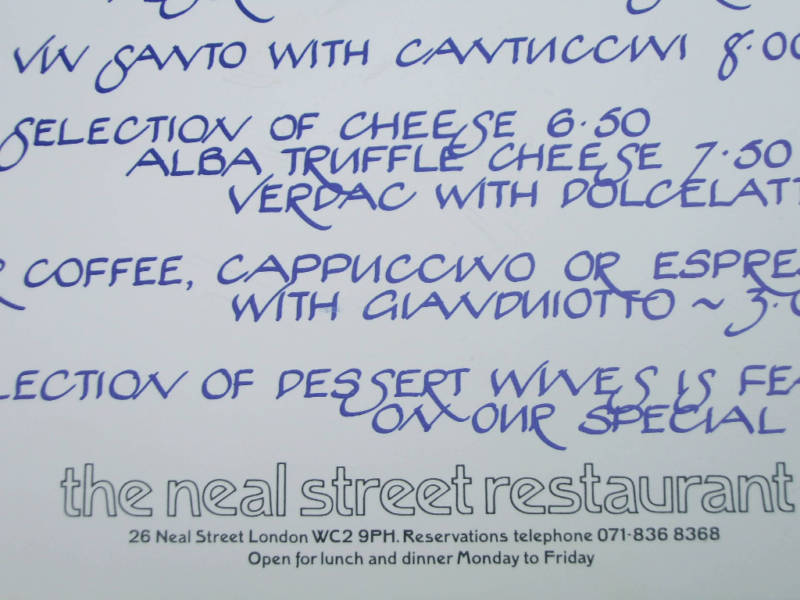 VIN SANTO WITH CANTUCCINI 8.00
SELECTION OF CHEESE 6.50
ALBA TRUFFLE CHEESE 7.50
VERDAC WITH DOLCELATT
R COFFEE, CAPPUCCINO OR ESPRE
WITH GIANDUIOTTO ~ 3.0
LECTION OF DESSERT WINES IS FEA
ON OUR SPECIAL
the neal street restaurant
26 Neal Street London WC2 9PH. Reservations telephone 071-836 8368
Open for lunch and dinner Monday to Friday